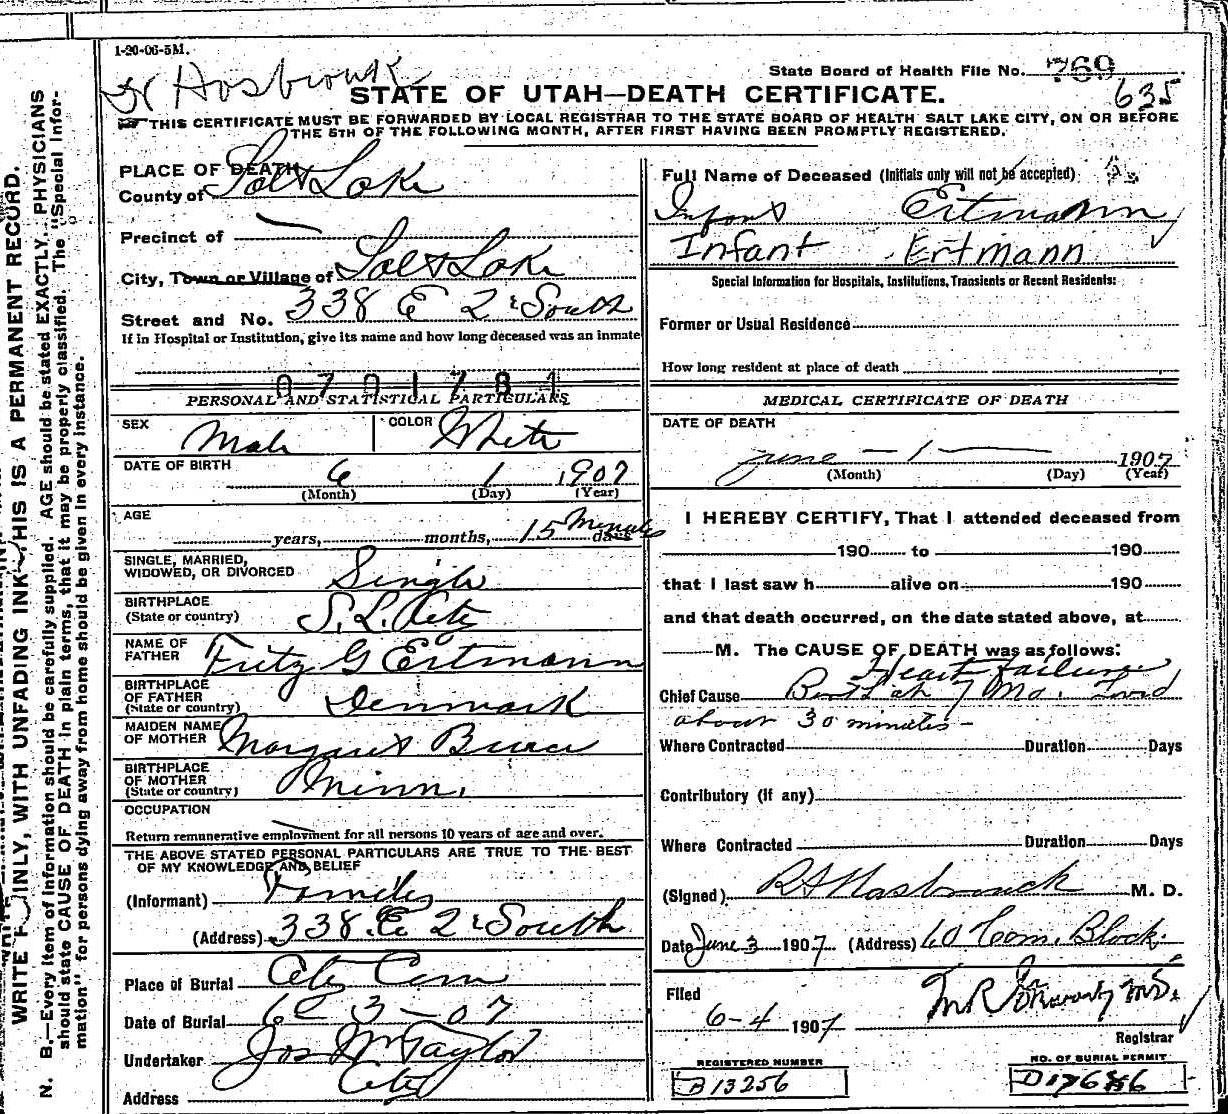 1-20-06-5M.
Dr Hasbrouck
State Board of Health File No. 769
635
STATE OF UTAH—DEATH CERTIFICATE.
THIS CERTIFICATE MUST BE FORWARDED BY LOCAL REGISTRAR TO THE STATE BOARD OF HEALTH SALT LAKE CITY, ON OR BEFORE
THE 5TH OF THE FOLLOWING MONTH, AFTER FIRST HAVING BEEN PROMPTLY REGISTERED.
PLACE OF DEATH
County of Salt Lake
Precinct of —
City, Town or Village of Salt Lake
Street and No. 338 E 2 South
If in Hospital or Institution, give its name and how long deceased was an inmate
0701781
PERSONAL AND STATISTICAL PARTICULARS
SEX Male COLOR White
DATE OF BIRTH 6 1 1907
(Month) (Day) (Year)
AGE
years, months, 15 Minutes days
SINGLE, MARRIED,
WIDOWED, OR DIVORCED Single
BIRTHPLACE
(State or country) S. L. City
NAME OF
FATHER Fritz G Ertmann
BIRTHPLACE
OF FATHER
(State or country) Denmark
MAIDEN NAME
OF MOTHER Margaret
BIRTHPLACE
OF MOTHER
(State or country) Minn.
OCCUPATION —
Return remunerative employment for all persons 10 years of age and over.
THE ABOVE STATED PERSONAL PARTICULARS ARE TRUE TO THE BEST
OF MY KNOWLEDGE AND BELIEF
(Informant) Family
(Address) 338 E 2 South
Place of Burial City Cem
Date of Burial 6 3 - 07
Undertaker Jos Wm Taylor
Address City
Full Name of Deceased (Initials only will not be accepted)
Infant Ertmann
Infant Ertmann
Special Information for Hospitals, Institutions, Transients or Recent Residents:
Former or Usual Residence
How long resident at place of death
MEDICAL CERTIFICATE OF DEATH
DATE OF DEATH
June - 1 — 1907
(Month) (Day) (Year)
I HEREBY CERTIFY, That I attended deceased from
190 to 190
that I last saw h alive on 190
and that death occurred, on the date stated above, at
M. The CAUSE OF DEATH was as follows:
Heart failure
Chief Cause 7 Mo. Lived
about 30 minutes -
Where Contracted Duration Days
Contributory (if any)
Where Contracted Duration Days
(Signed) R A Hasbrouck M. D.
Date June 3 1907 (Address) 60 Com. Block.
Filed
6-4 1907
M.D.
Registrar
REGISTERED NUMBER
B13256
NO. OF BURIAL PERMIT
WRITE PLAINLY, WITH UNFADING INK—THIS IS A PERMANENT RECORD.
N. B.—Every item of information should be carefully supplied. AGE should be stated EXACTLY. PHYSICIANS
should state CAUSE OF DEATH in plain terms, that it may be properly classified. The "Special Infor-
mation" for persons dying away from home should be given in every instance.